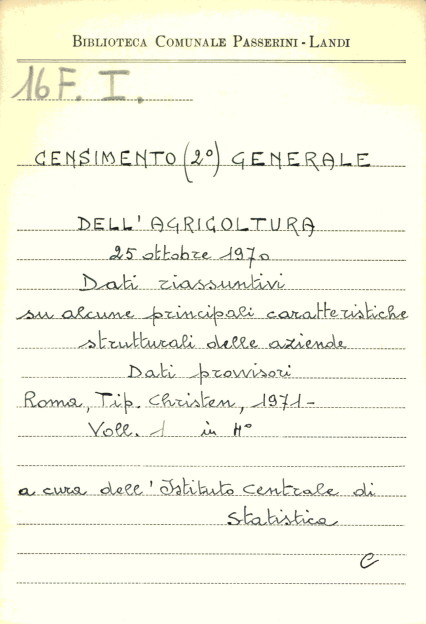 BIBLIOTECA COMUNALE PASSERINI - LANDI
16 F. I.
CENSIMENTO (2°) GENERALE
DELL'AGRICOLTURA
25 ottobre 1970
Dati riassuntivi
su alcune principali caratteristiche
strutturali delle aziende
Dati provvisori
Roma, Tip. Christen, 1971-
Voll. 1 in 4°
a cura dell'Istituto Centrale di
Statistica
C